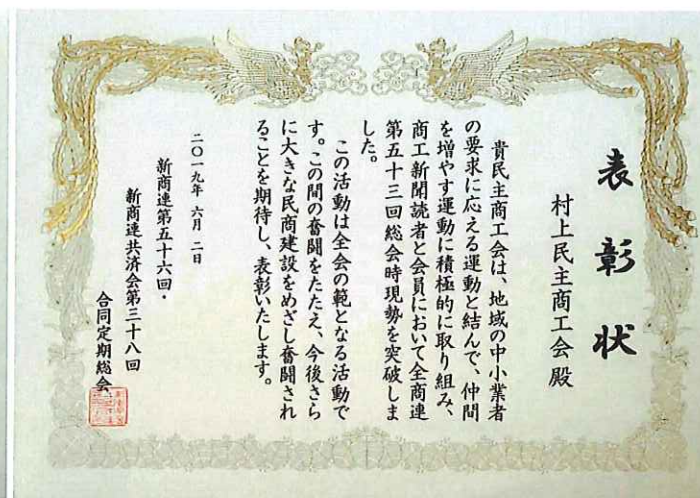 表彰状
村上民主商工会殿
貴民主商工会は、地域の中小業者
の要求に応える運動と結んで、仲間
を増やす運動に積極的に取り組み、
商工新聞読者と会員において全商連
第五十三回総会時現勢を突破しま
した。
この活動は全会の範となる活動で
す。この間の奮闘をたたえ、今後さら
に大きな民商建設をめざし奮闘され
ることを期待し、表彰いたします。
二〇一九年 六月 二日
新商連第五十六回・
新商連共済会第三十八回
合同定期総会